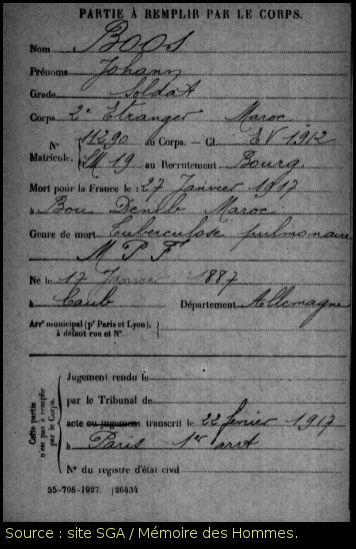 PARTIE À REMPLIR PAR LE CORPS.
Nom Boos
Prénoms Johann
Grade Soldat
Corps 2e Etranger Maroc
N° Matricule. { 11290 au Corps. — Cl. EV 1912
LM 19 au Recrutement Bourg
Mort pour la France le : 27 Janvier 1917
à Bou Denib Maroc
Genre de mort Tuberculose pulmonaire
M P F
Né le 17 Janvier 1887
à Caub Département Allemagne
Arrt municipal (pr Paris et Lyon), à défaut rue et N°. {
Cette partie n'est pas à remplir par le Corps.
Jugement rendu le
par le Tribunal de
acte ou jugement transcrit le 22 février 1917
à Paris 1er arrt
N° du registre d'état civil
55-708-1927. [26434
Source : site SGA / Mémoire des Hommes.